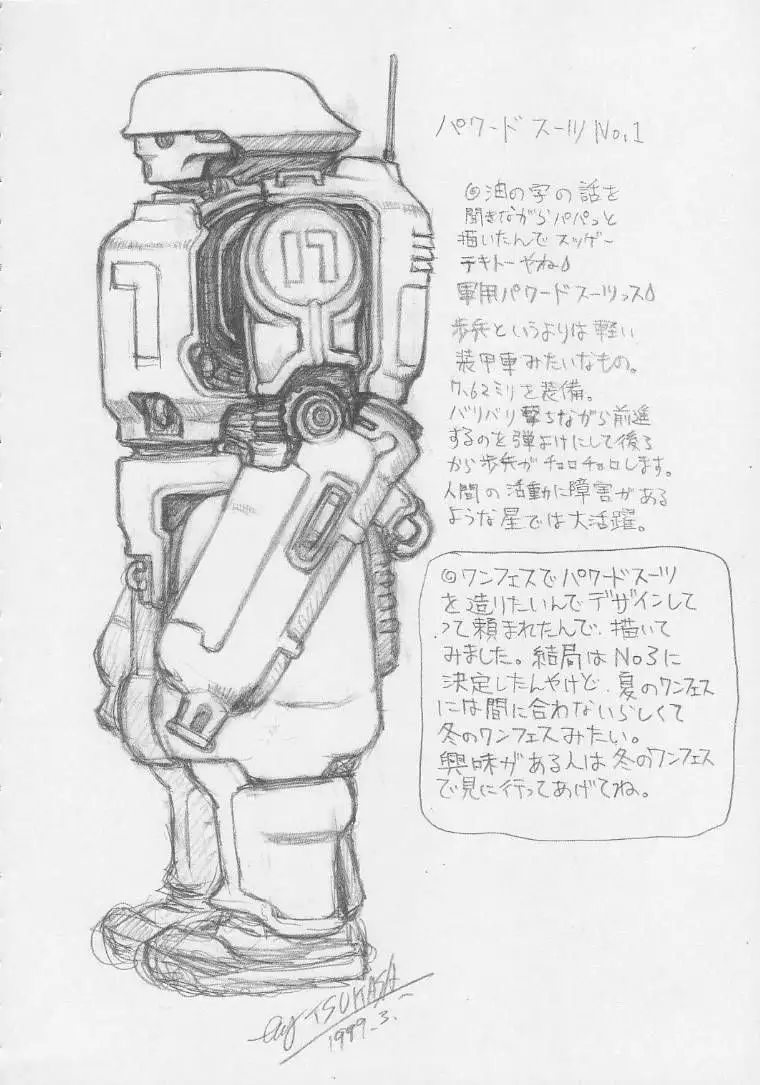 パワード スーツ No.1
◎油の字の話を
聞きながらパパっと
描いたんでスッゲー
テキトーやね
軍用パワードスーツっス
歩兵というよりは軽い
装甲車みたいなもの。
7.62ミリを装備。
バリバリ撃ちながら前進
するのを弾よけにして後ろ
から歩兵がチョロチョロします。
人間の活動に障害がある
ような星では大活躍。
◎ワンフェスでパワードスーツ
を造りたいんでデザインして
って頼まれたんで、描いて
みました。結局はNo3に
決定したんやけど、夏のワンフェス
には間に合わないらしくて
冬のワンフェスみたい。
興味がある人は冬のワンフェス
で見に行ってあげてね。
17
1
by TSUKASA
1999.3.